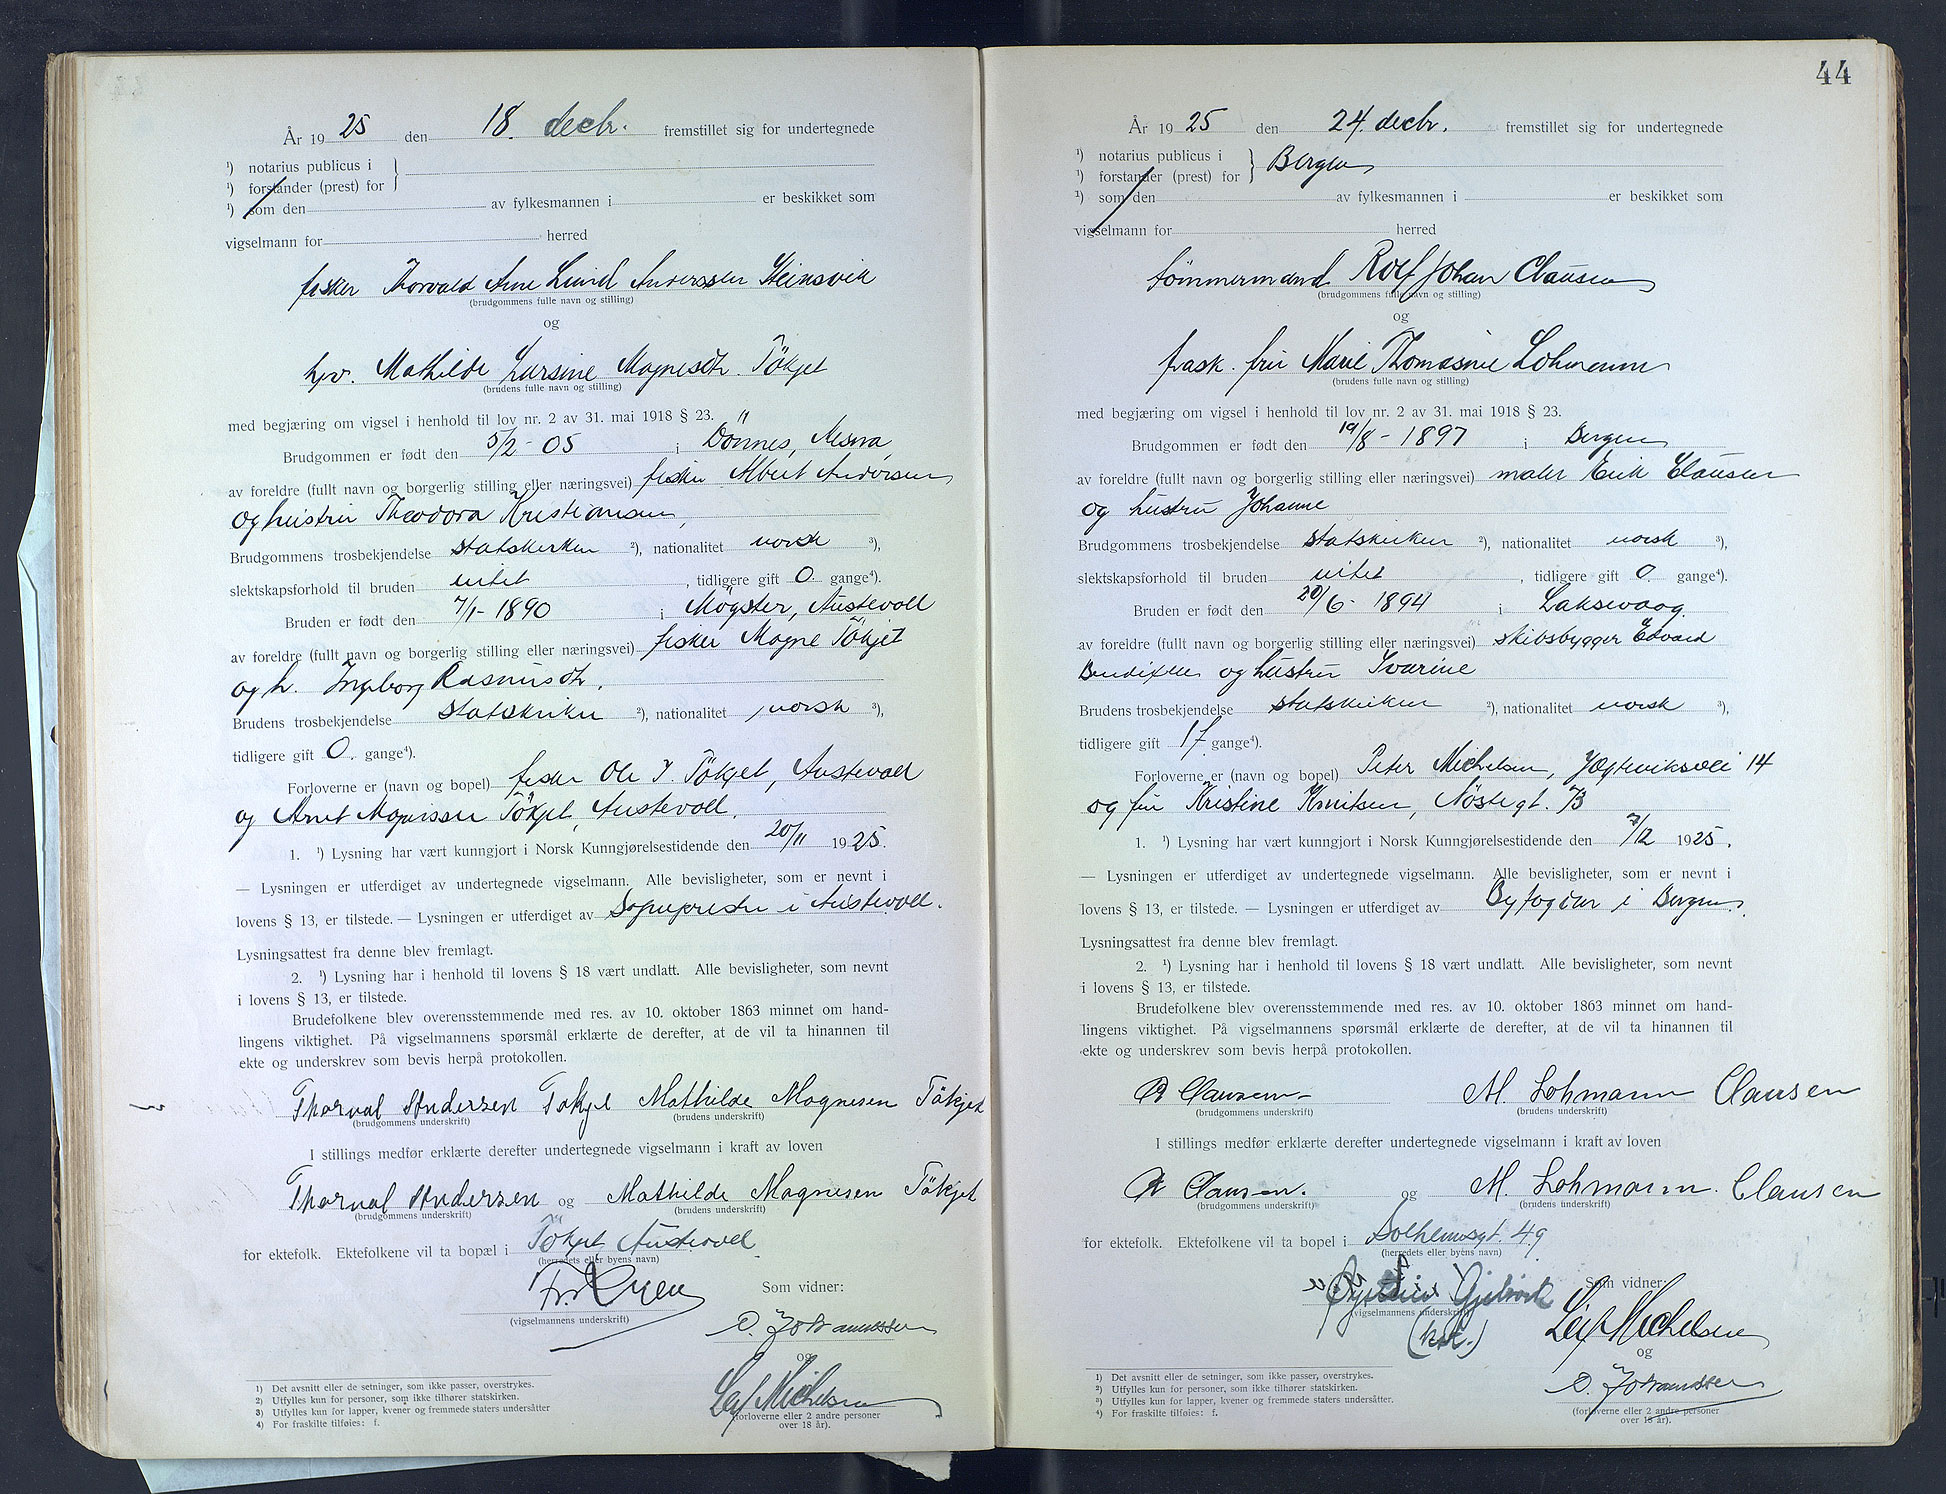 År 1925 den 18. decbr. fremstillet sig for undertegnede
¹) notarius publicus i
¹) forstander (prest) for
¹) som den av fylkesmannen i er beskikket som
vigselmann for herred
fisker Thorvald Arne Lund Anderssen Steinsvik
(brudgommens fulle navn og stilling)
og
hjv. Mathilde Larsine Magnesdtr. Tökjet
(brudens fulle navn og stilling)
med begjæring om vigsel i henhold til lov nr. 2 av 31. mai 1918 § 23.
Brudgommen er født den 5/2 - 05 i Dönnes, Nesna
av foreldre (fullt navn og borgerlig stilling eller næringsvei) fisker Albert Andersen
og hustru Theodora Kristiansen,
Brudgommens trosbekjendelse statskirken ²), nationalitet norsk ³),
slektskapsforhold til bruden intet, tidligere gift 0. gange⁴).
Bruden er født den 7/1 - 1890 i Mögster, Austevoll
av foreldre (fullt navn og borgerlig stilling eller næringsvei) fisker Magne Tökjet
og h. Ingeborg Rasmusdtr.
Brudens trosbekjendelse statskirken ²), nationalitet norsk ³),
tidligere gift 0. gange⁴).
Forloverne er (navn og bopel) fisker Ole J. Tökjet, Austevoll
og Arnt Magnissen Tökjet, Austevoll.
1. ¹) Lysning har vært kunngjort i Norsk Kunngjørelsestidende den 20/11 1925.
— Lysningen er utferdiget av undertegnede vigselmann. Alle bevisligheter, som er nevnt i
lovens § 13, er tilstede. — Lysningen er utferdiget av Sognepresten i Austevoll.
Lysningsattest fra denne blev fremlagt.
2. ¹) Lysning har i henhold til lovens § 18 vært undlatt. Alle bevisligheter, som nevnt
i lovens § 13, er tilstede.
Brudefolkene blev overensstemmende med res. av 10. oktober 1863 minnet om hand-
lingens viktighet. På vigselmannens spørsmål erklærte de derefter, at de vil ta hinannen til
ekte og underskrev som bevis herpå protokollen.
Thorval Andersen Tökjet Mathilde Magnesen Tökjet
(brudgommens underskrift) (brudens underskrift)
I stillings medfør erklærte derefter undertegnede vigselmann i kraft av loven
Thorval Andersen og Mathilde Magnesen Tökjet
(brudgommens underskrift) (brudens underskrift)
for ektefolk. Ektefolkene vil ta bopæl i Tökjet Austevoll
(herredets eller byens navn)
Som vidner:
(vigselmannens underskrift)
O. Johannessen
og
Leif Michelsen
(forloverne eller 2 andre personer
over 18 år).
1) Det avsnitt eller de setninger, som ikke passer, overstrykes.
2) Utfylles kun for personer, som ikke tilhører statskirken.
3) Utfylles kun for lapper, kvener og fremmede staters undersåtter
4) For fraskilte tilføies: f.
44
År 1925 den 24. decbr. fremstillet sig for undertegnede
¹) notarius publicus i Bergen
¹) forstander (prest) for
¹) som den av fylkesmannen i er beskikket som
vigselmann for herred
tömmermand Rolf Johan Clausen
(brudgommens fulle navn og stilling)
og
frask. fru Marie Thomasine Lohmann
(brudens fulle navn og stilling)
med begjæring om vigsel i henhold til lov nr. 2 av 31. mai 1918 § 23.
Brudgommen er født den 19/8 - 1897 i Bergen
av foreldre (fullt navn og borgerlig stilling eller næringsvei) maler Erik Clausen
og hustru Johanne
Brudgommens trosbekjendelse statskirken ²), nationalitet norsk ³),
slektskapsforhold til bruden intet, tidligere gift 0. gange⁴).
Bruden er født den 20/6 - 1894 i Laksevaag
av foreldre (fullt navn og borgerlig stilling eller næringsvei) skibsbygger Edvard
Bendixen og hustru Ivarine
Brudens trosbekjendelse statskirken ²), nationalitet norsk ³),
tidligere gift 1 f gange⁴).
Forloverne er (navn og bopel) Peter Michelsen, Jægteviksvei 14
og fru Kristine Knutsen, Nöstegt. 73
1. ¹) Lysning har vært kunngjort i Norsk Kunngjørelsestidende den 7/12 1925.
— Lysningen er utferdiget av undertegnede vigselmann. Alle bevisligheter, som er nevnt i
lovens § 13, er tilstede. — Lysningen er utferdiget av Byfogden i Bergen.
Lysningsattest fra denne blev fremlagt.
2. ¹) Lysning har i henhold til lovens § 18 vært undlatt. Alle bevisligheter, som nevnt
i lovens § 13, er tilstede.
Brudefolkene blev overensstemmende med res. av 10. oktober 1863 minnet om hand-
lingens viktighet. På vigselmannens spørsmål erklærte de derefter, at de vil ta hinannen til
ekte og underskrev som bevis herpå protokollen.
R Clausen M. Lohmann Clausen
(brudgommens underskrift) (brudens underskrift)
I stillings medfør erklærte derefter undertegnede vigselmann i kraft av loven
R Clausen. og M. Lohmann. Clausen
(brudgommens underskrift) (brudens underskrift)
for ektefolk. Ektefolkene vil ta bopel i Solheimsgt. 49
(herredets eller byens navn)
Som vidner:
(vigselmannens underskrift)
(kst.)
Leif Michelsen
og
O. Johannessen
(forloverne eller 2 andre personer
over 18 år).
1) Det avsnitt eller de setninger, som ikke passer, overstrykes.
2) Utfylles kun for personer, som ikke tilhører statskirken.
3) Utfylles kun for lapper, kvener og fremmede staters undersåtter.
4) For fraskilte tilføies: f.